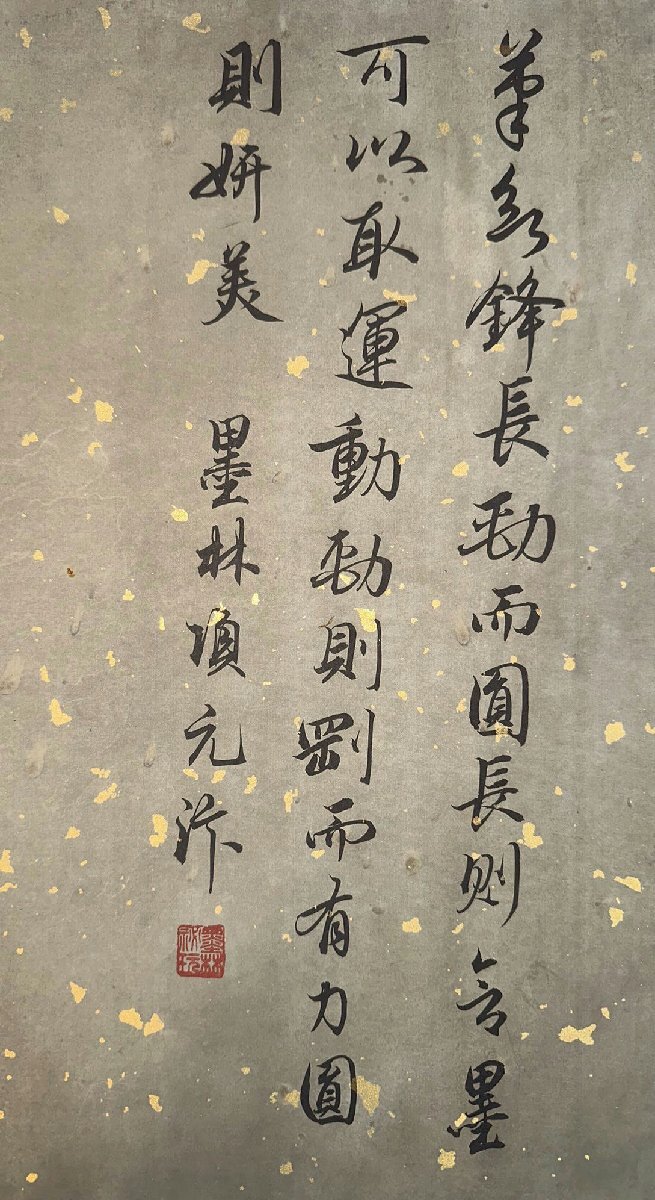 筆欲鋒長勁而圓長則含墨
可以取運動勁則剛而有力圓
則妍美 墨林項元汴
墨林祕玩